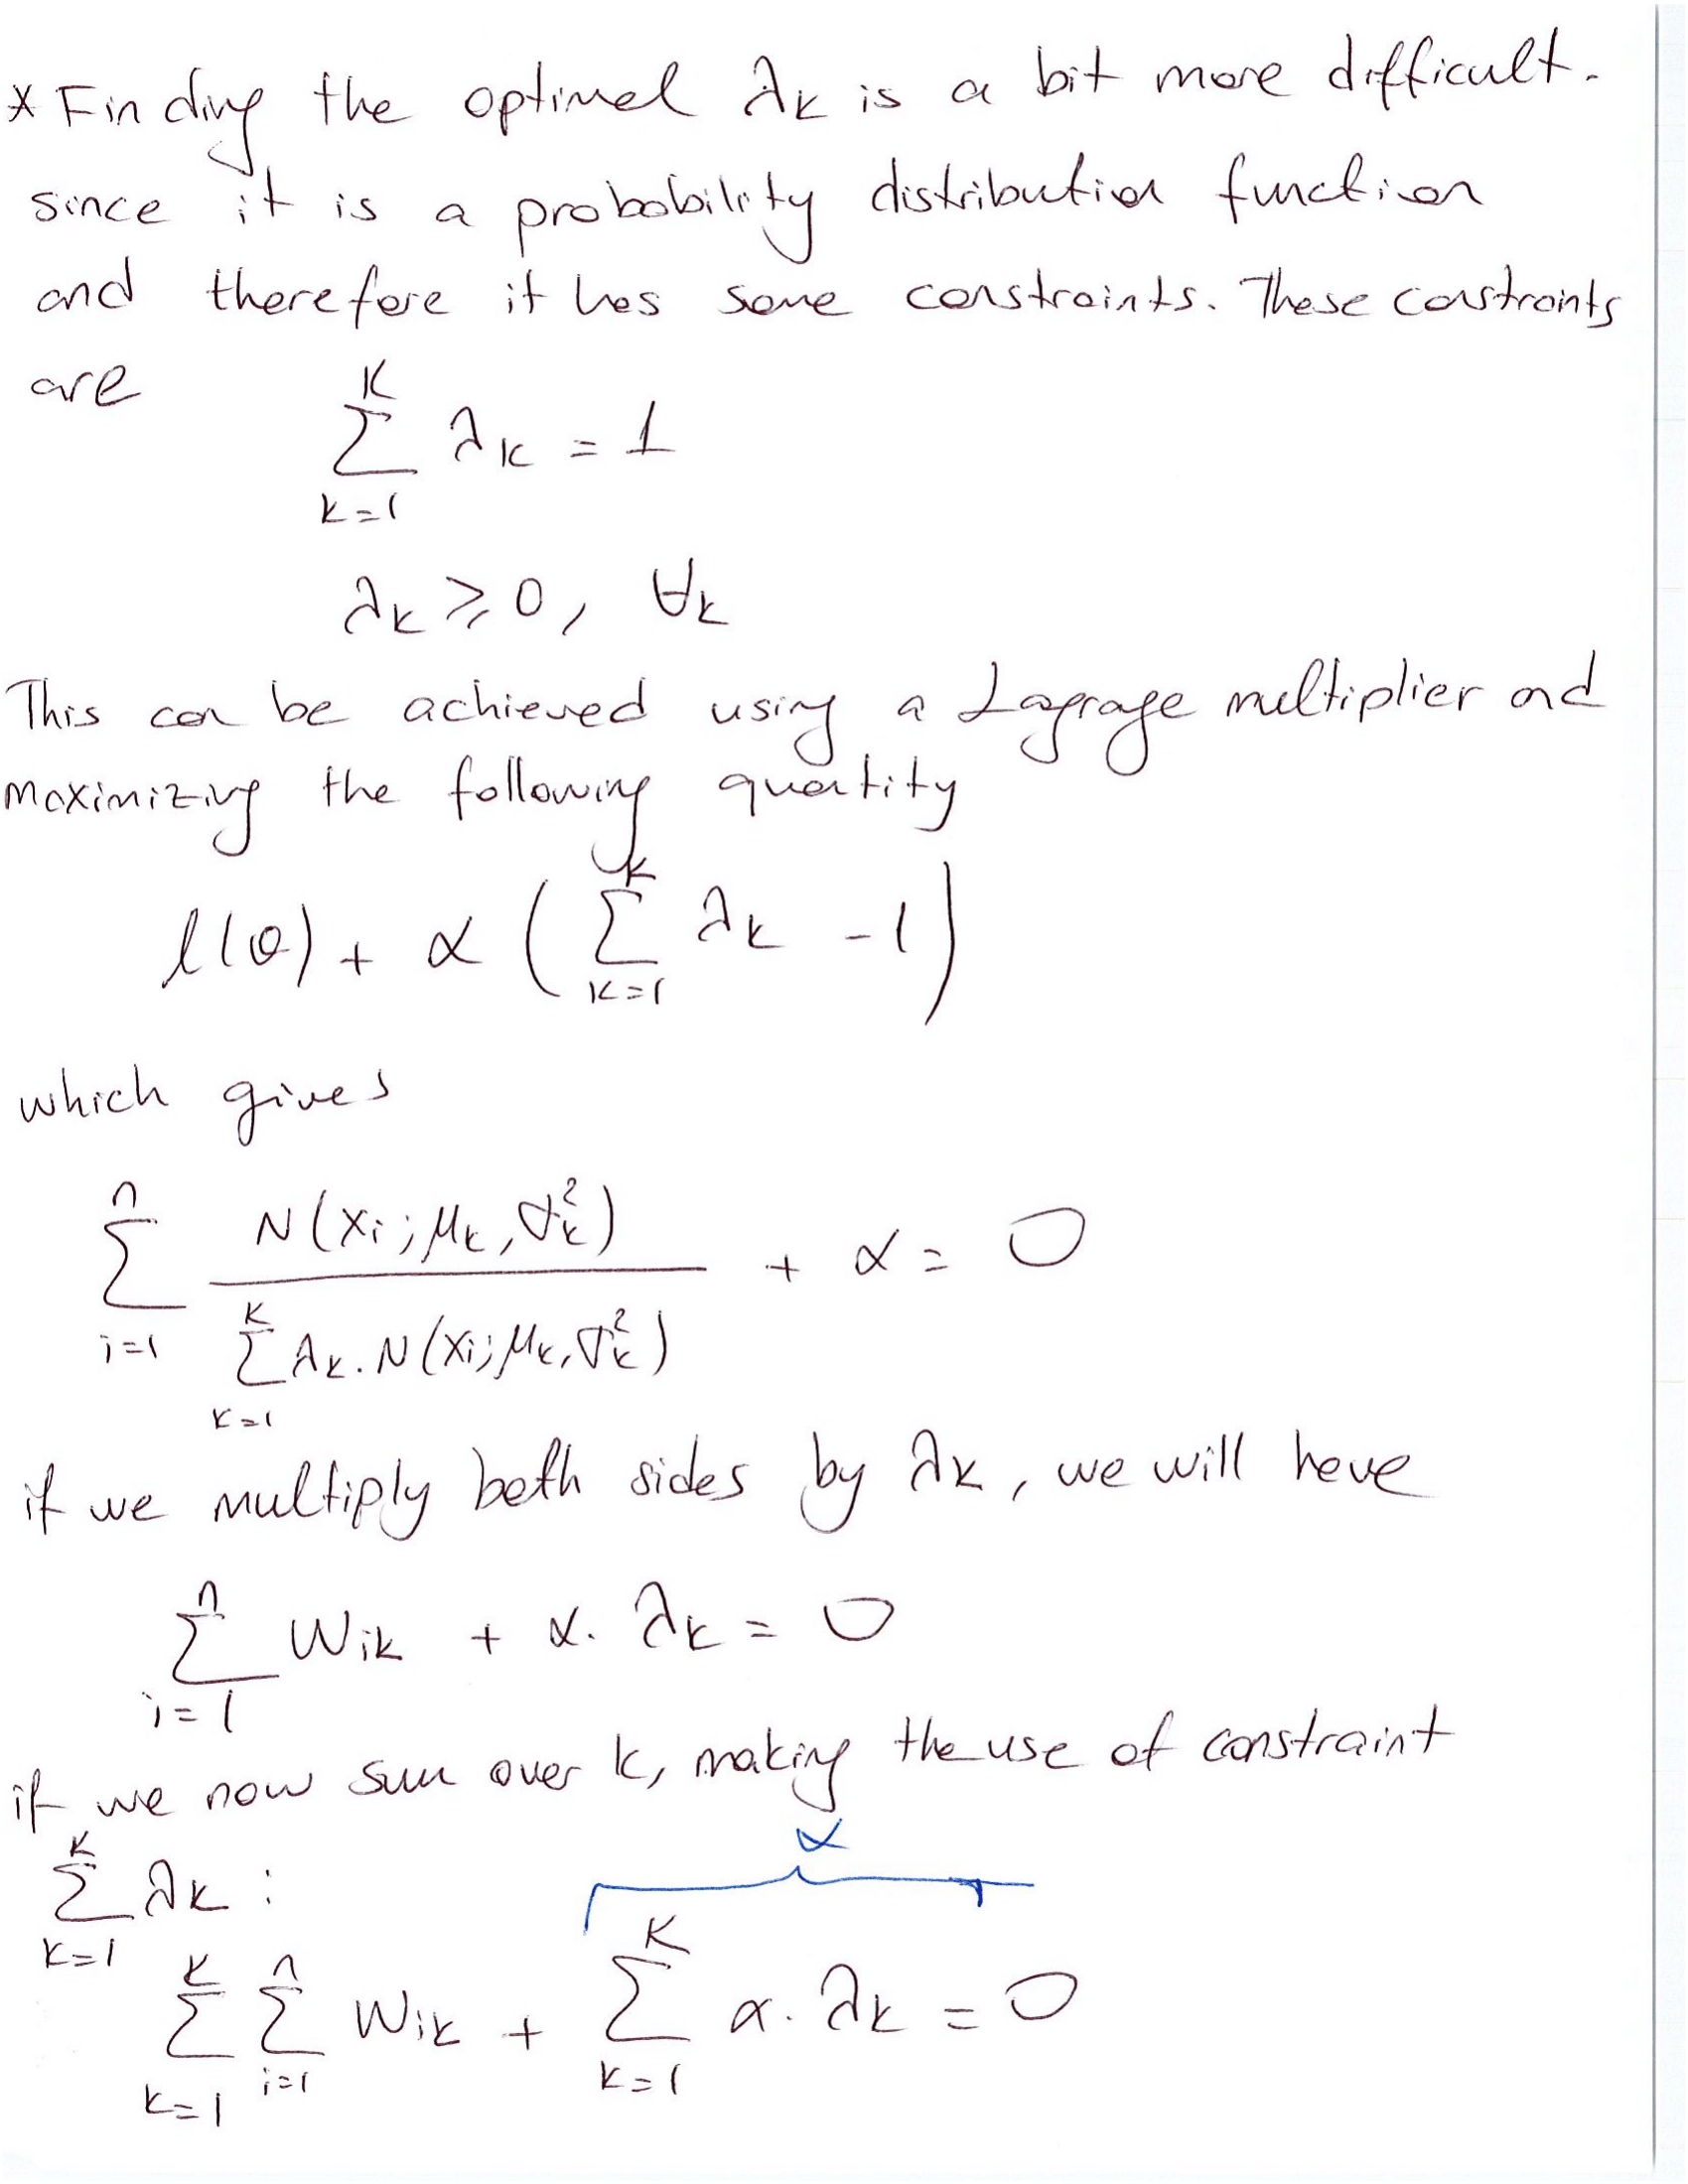 * Finding the optimal λk is a bit more difficult.
since it is a probability distribution function
and therefore it has some constraints. These constraints
are
K
∑ λk = 1
k=1
λk ≥ 0, ∀k
This can be achieved using a Lagrage multiplier and
maximizing the following quantity
l(θ) + α ( K∑k=1 λk - 1 )
which gives
n∑i=1 N(xi; μk, σk²) / K∑k=1 λk. N(xi; μk, σk²) + α = 0
if we multiply both sides by λk, we will have
n∑i=1 wik + α. λk = 0
if we now sum over k, making the use of constraint
α
K∑k=1 λk :
K∑k=1 n∑i=1 wik + K∑k=1 α. λk = 0